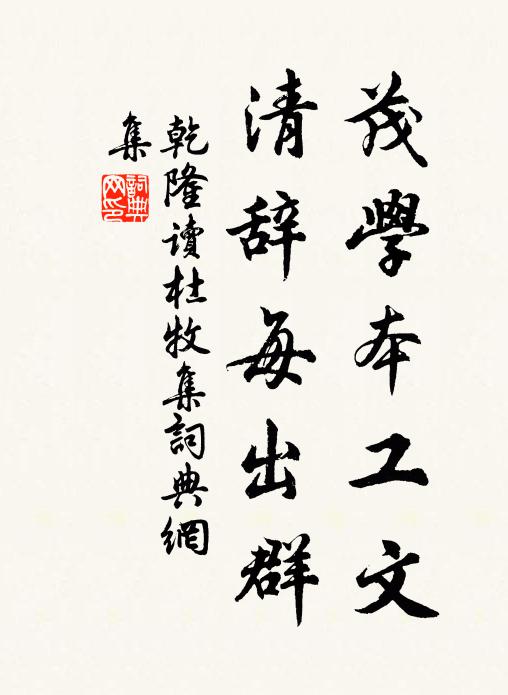 茂學本工文
清辞每出群
乾隆讀杜牧集詞典網
集
詞典网印